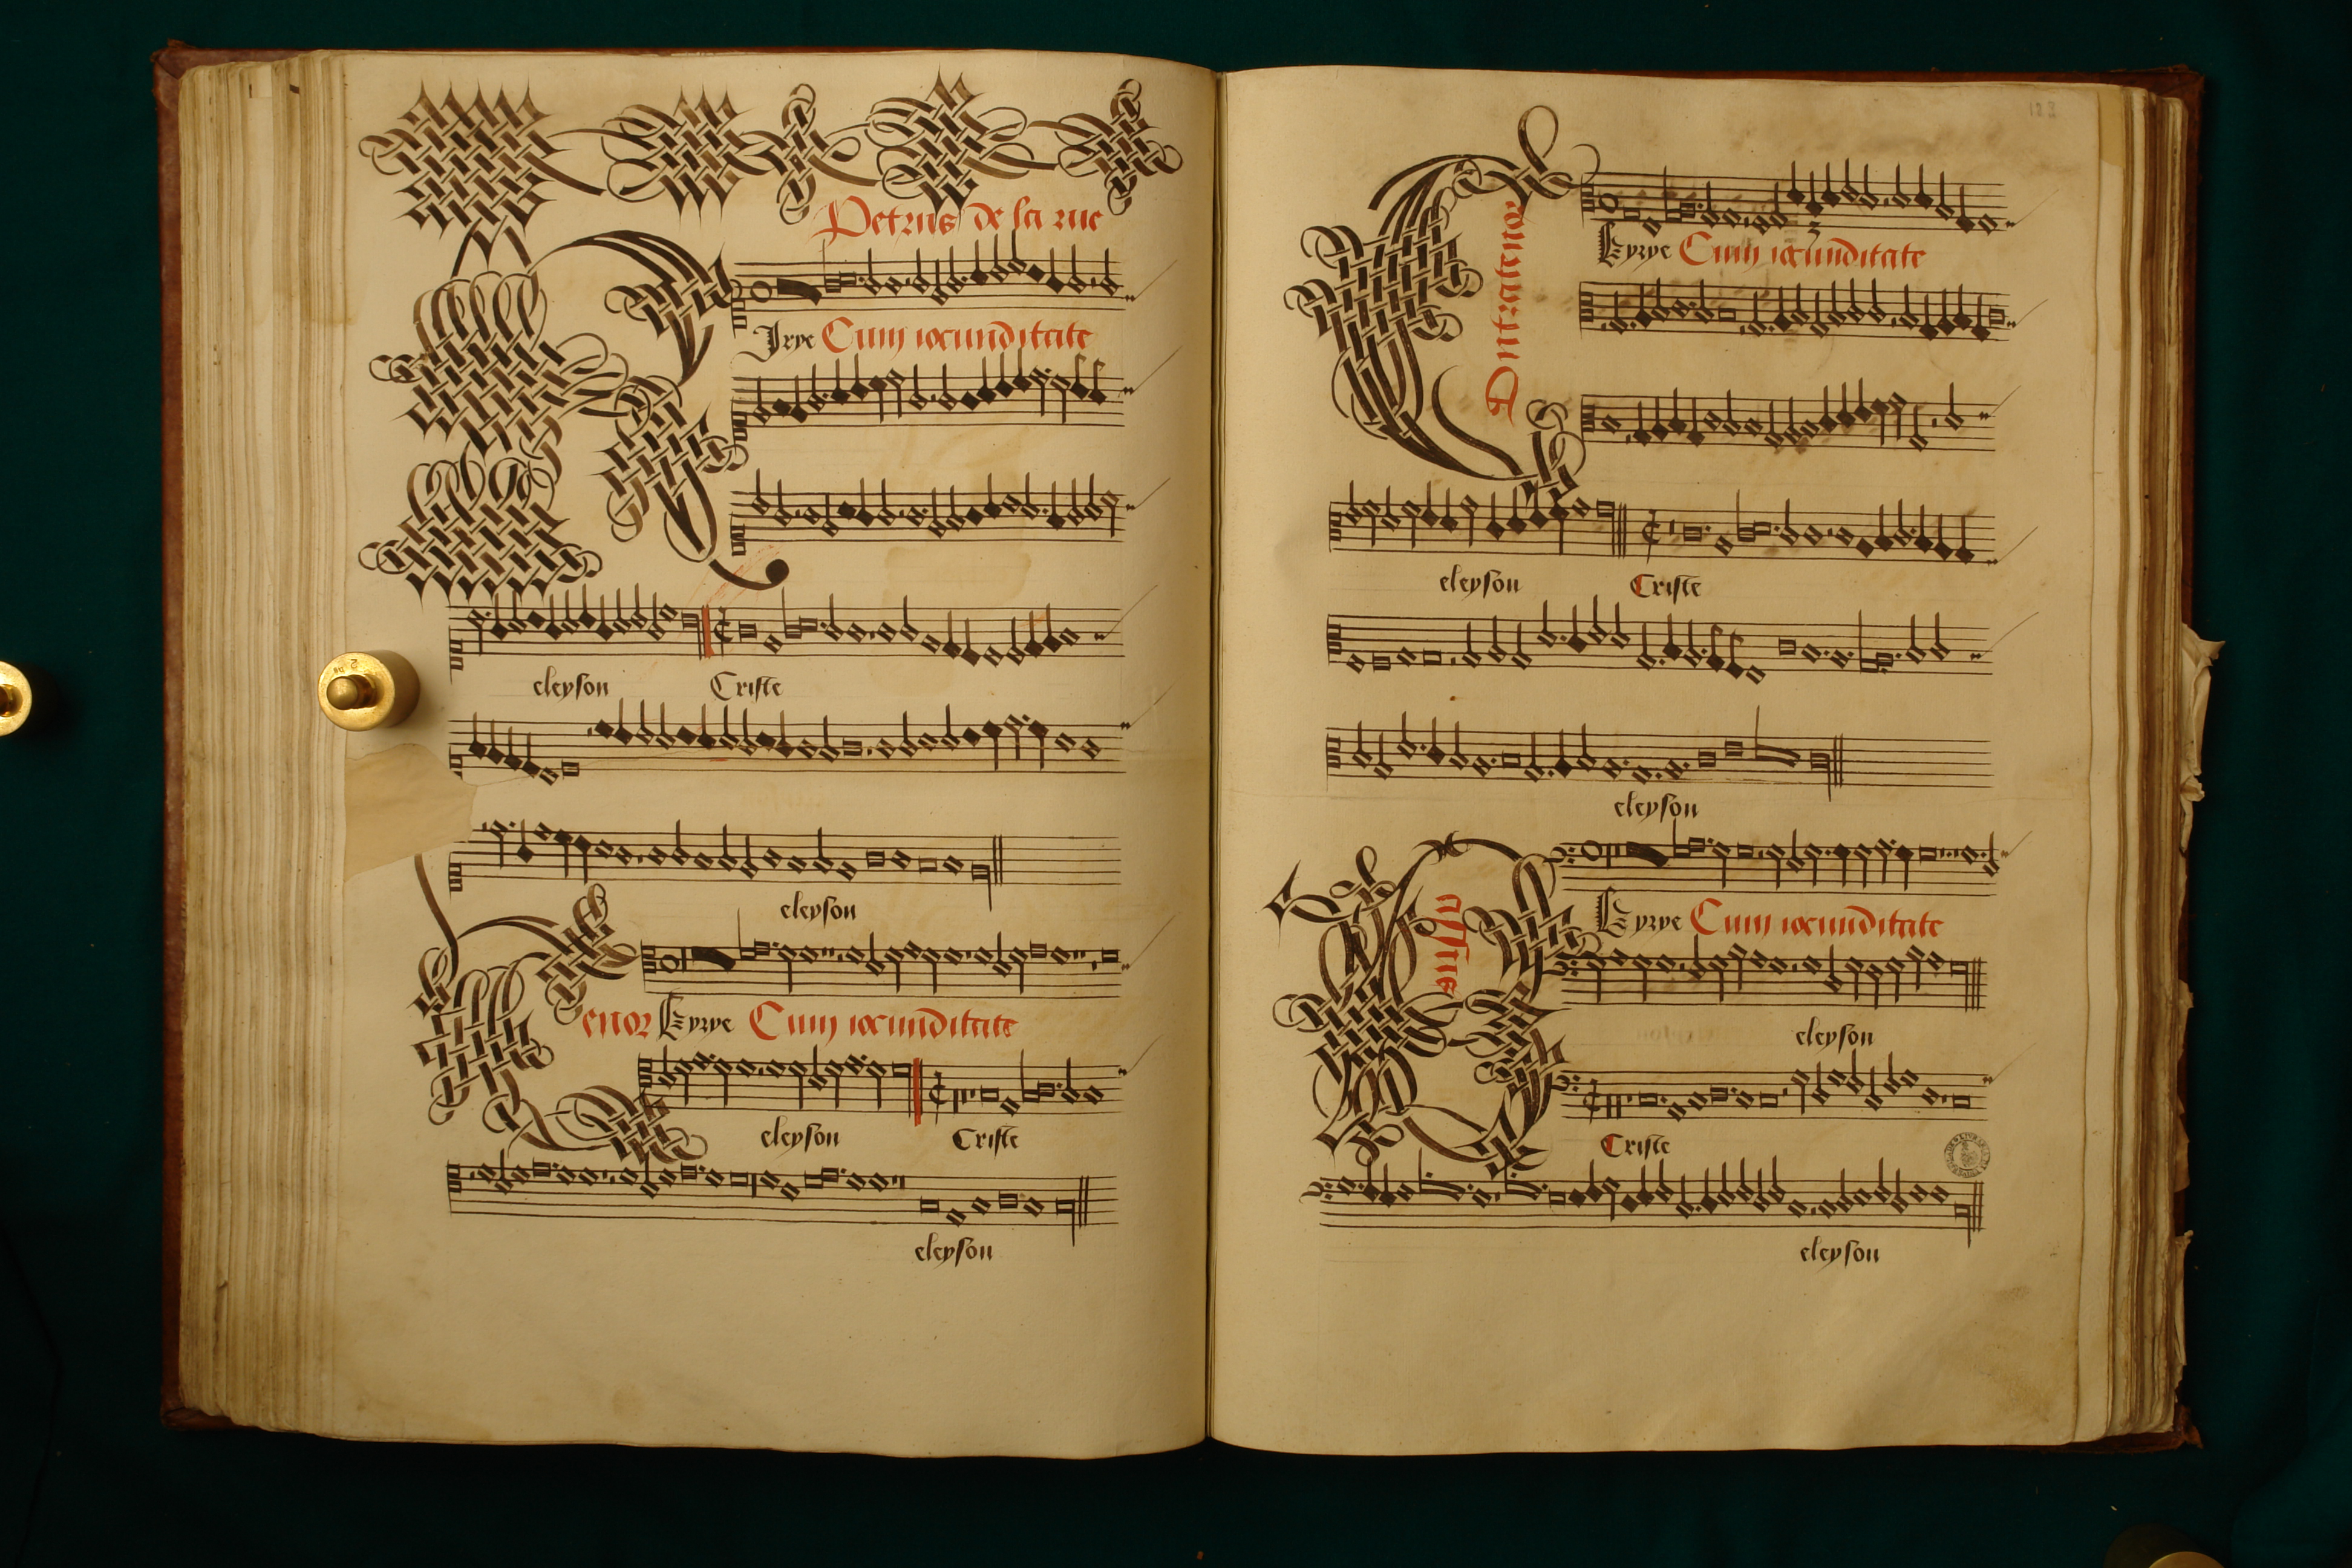 Petrus de la rue
Kirye Cum iocunditate
eleyson Criste
eleyson
Tenor Kyrye Cum iocunditate
eleyson Criste
eleyson
Contratenor
Kyrye Cum iocunditate
eleyson Criste
eleyson
Bassus
Kyrye Cum iocunditate
eleyson
Criste
eleyson